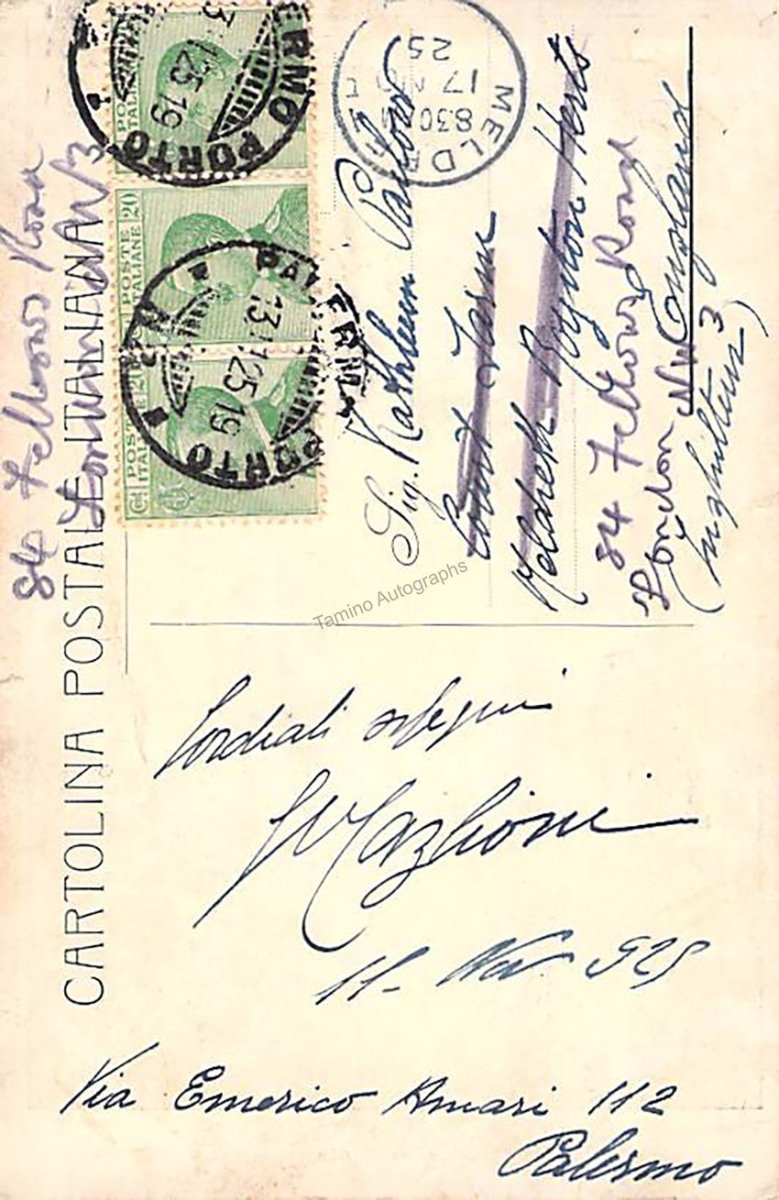 CARTOLINA POSTALE ITALIANA
84 Fellows Road
London NW3
POSTE ITALIANE 20
POSTE ITALIANE 20
POSTE ITALIANE
PALERMO PORTO
13. 25 19
ERMO PORTO
25 19
MELD
8 30
17 NO
25
Sig. Kathleen Parlow
Court Farm
Meldreth Royston Herts
84 Fellows Road
London NW3 England
(Inghilterra)
Tamino Autographs
Cordiali ossequi
11 - Nov 925
Via Emerico Amari 112
Palermo